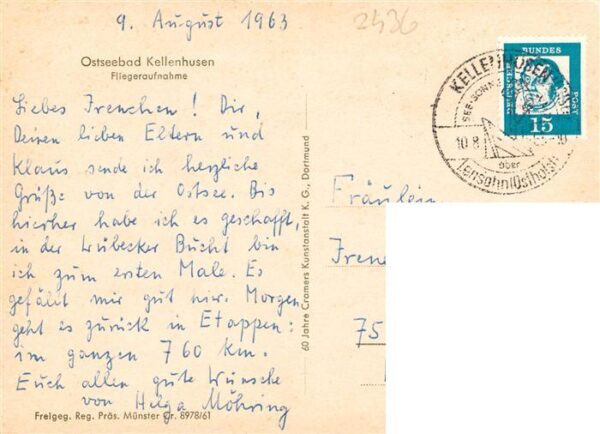 9. August 1963
2436
Ostseebad Kellenhusen
Fliegeraufnahme
Liebes Frenchen! Dir,
Deinen lieben Eltern und
Klaus sende ich herzliche
Grüße von der Ostsee. Bis
hierher habe ich es geschafft,
in der Lübecker Bucht bin
ich zum ersten Male. Es
gefällt mir gut hier. Morgen
geht es zurück in Etappen:
im ganzen 760 km.
Euch allen gute Wünsche
von Helga Möhring
Freigeg. Reg. Präs. Münster Nr. 8978/61
60 Jahre Cramers Kunstanstalt K. G., Dortmund
KELLENHUSEN
10.8
über
Lensahn (Ostholst)
BUNDES
POST
15
Fräulein
Frene
75